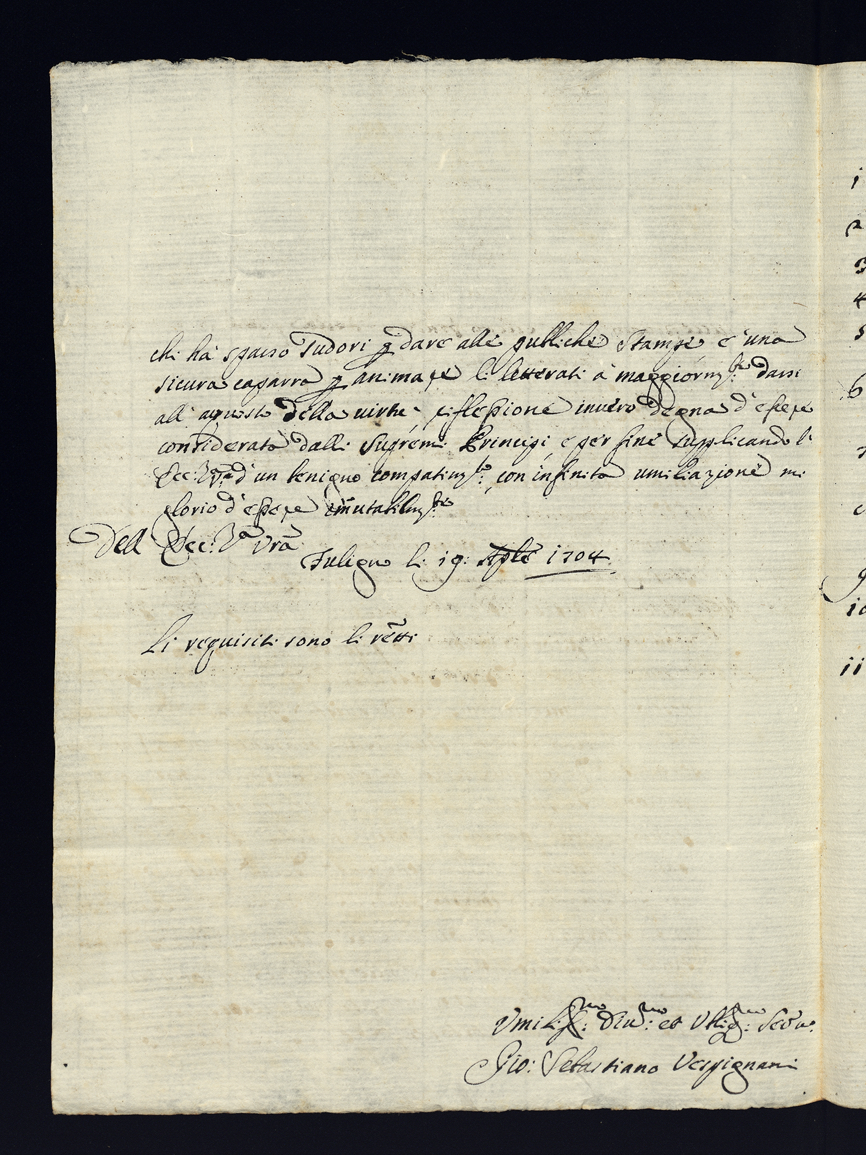 chi hà sparso sudori p dare alle publiche stampe è una
sicura caparra p animare li letterati à maggiormte: darsi
all' aquisto della virtù: riflessione invero degna d'essere
considerata dalli Supremi Principi, e per fine supplicando l'
Ecc: Vra d'un benigno compatimto:, con infinita umiliazione mi
glorio d'essere imutabilmte
Dell' Ecc: Va Vra
Fuligno li 19: Aple 1704.
Li requisiti sono li retti
Umiliss:mo Div:mo et Oblig:mo Serv:
Gio: Sebastiano Vespignani
1
2
3
4
5
6
9
10
11